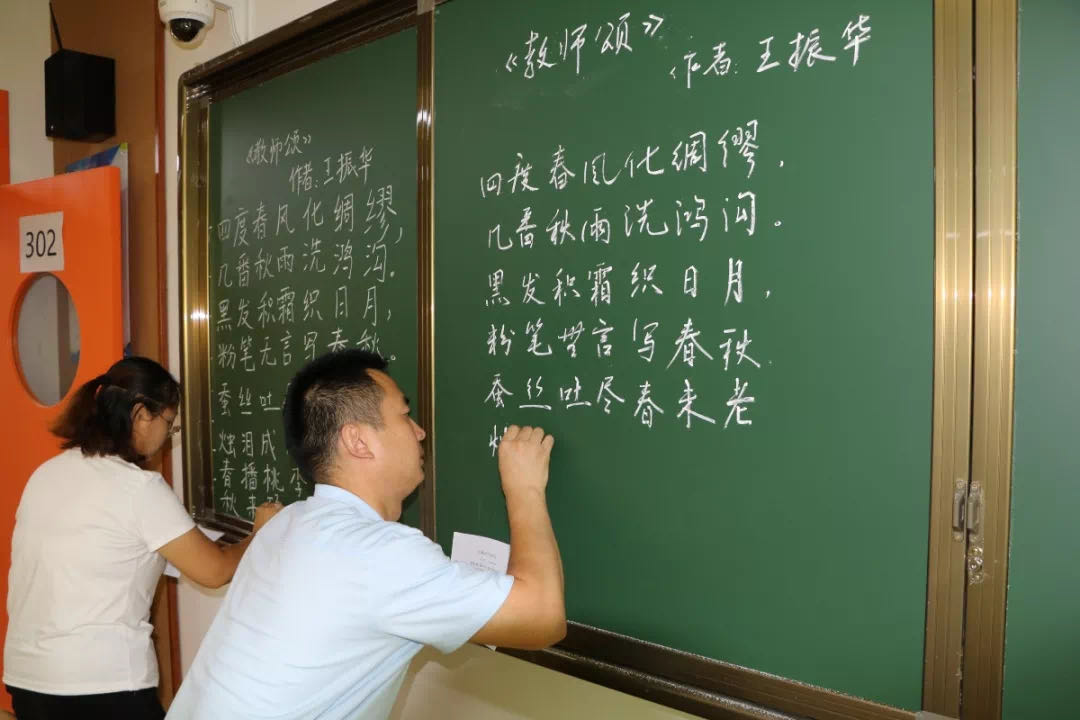 302
《教师颂》
作者:王振华
四度春风化绸缪,
几番秋雨洗鸿沟.
黑发积霜织日月,
粉笔无言写春秋。
蚕丝吐
烛泪成
春播桃李
秋来
《教师颂》
作者:王振华
四度春风化绸缪,
几番秋雨洗鸿沟。
黑发积霜织日月,
粉笔無言写春秋.
蚕丝吐尽春未老